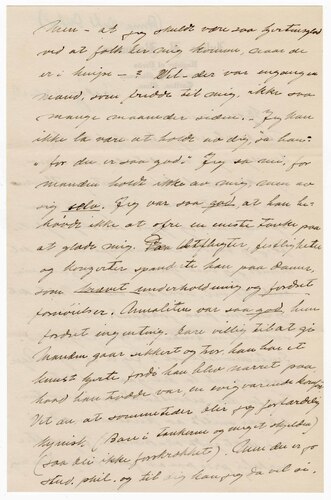 Men – at jeg skulde være saa hjertensglad
ved at folk ser mig komme, naar de
er i knipe – ? Vel – der var engang en
mand, som fridde til mig, ikke saa
mange maaneder siden. – "Jeg kan
ikke la være at holde av dig," sa han –
"for du er saa god." Jeg sa nei, for
manden holdt ikke av mig, men av
sig selv. Jeg var saa god, at han be-
høvde ikke at ofre en eneste tanke paa
at glade mig. festligheter
og konserter spanderte han paa damer,
som krævet underholdning og fordret
fornøielser. Annalitus var saa god, hun
fordret ingenting, bare villig til at gi
Manden gaar sikkert og tror, han har et
knust hjerte fordi han blev narret paa
hvad han trodde var en evigvarende
Vet du, at sommetider blir jeg forfærdelig
kynisk. Bare i tankerne og meget skjelden
(saa bli ikke forskrækket). Men du er jo
stud. phil. og til dig kan jeg da vel si.